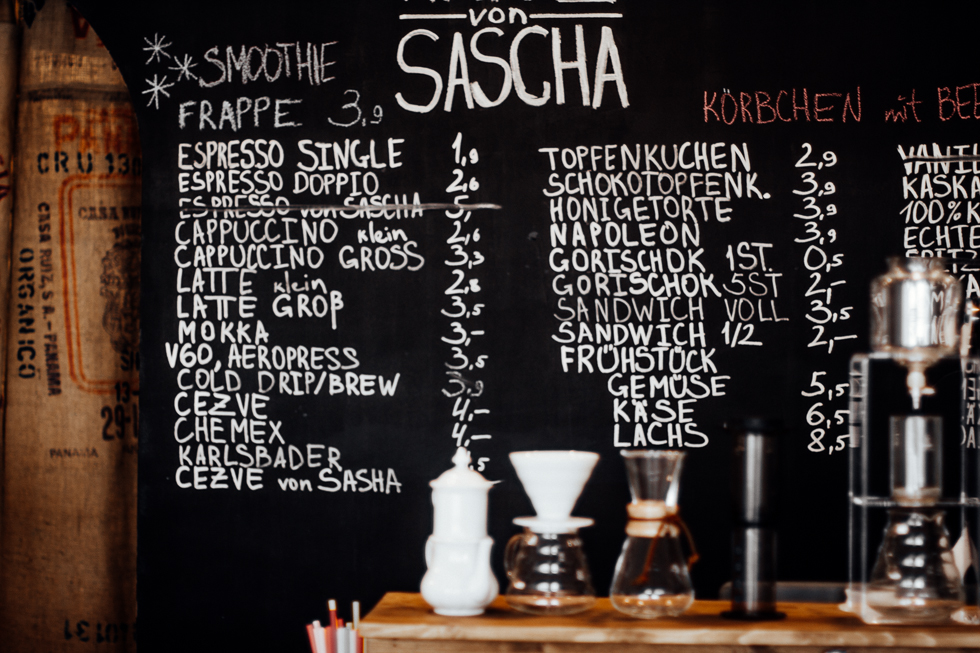 von
SASCHA
SMOOTHIE
FRAPPE 3,9
ESPRESSO SINGLE 1,9
ESPRESSO DOPPIO 2,6
ESPRESSO von SASCHA 5,-
CAPPUCCINO klein 2,6
CAPPUCCINO GROSS 3,3
LATTE klein 2,8
LATTE GROß 3,5
MOKKA 3,-
V60, AEROPRESS 3,5
COLD DRIP/BREW 3,9
CEZVE 4,-
CHEMEX 4,-
KARLSBADER
CEZVE von SASHA
KÖRBCHEN mit
TOPFENKUCHEN 2,9
SCHOKOTOPFENK. 3,9
HONIGETORTE 3,9
NAPOLEON 3,9
GORISCHOK 1ST. 0,5
GORISCHOK 5ST 2,-
SANDWICH VOLL 3,5
SANDWICH 1/2 2,-
FRÜHSTÜCK
GEMÜSE 5,5
KÄSE 6,5
LACHS 8,5
100% K
ECHTE
CRU 13
CASA RUIZ, S.A. - PANAMA
ORGANICO